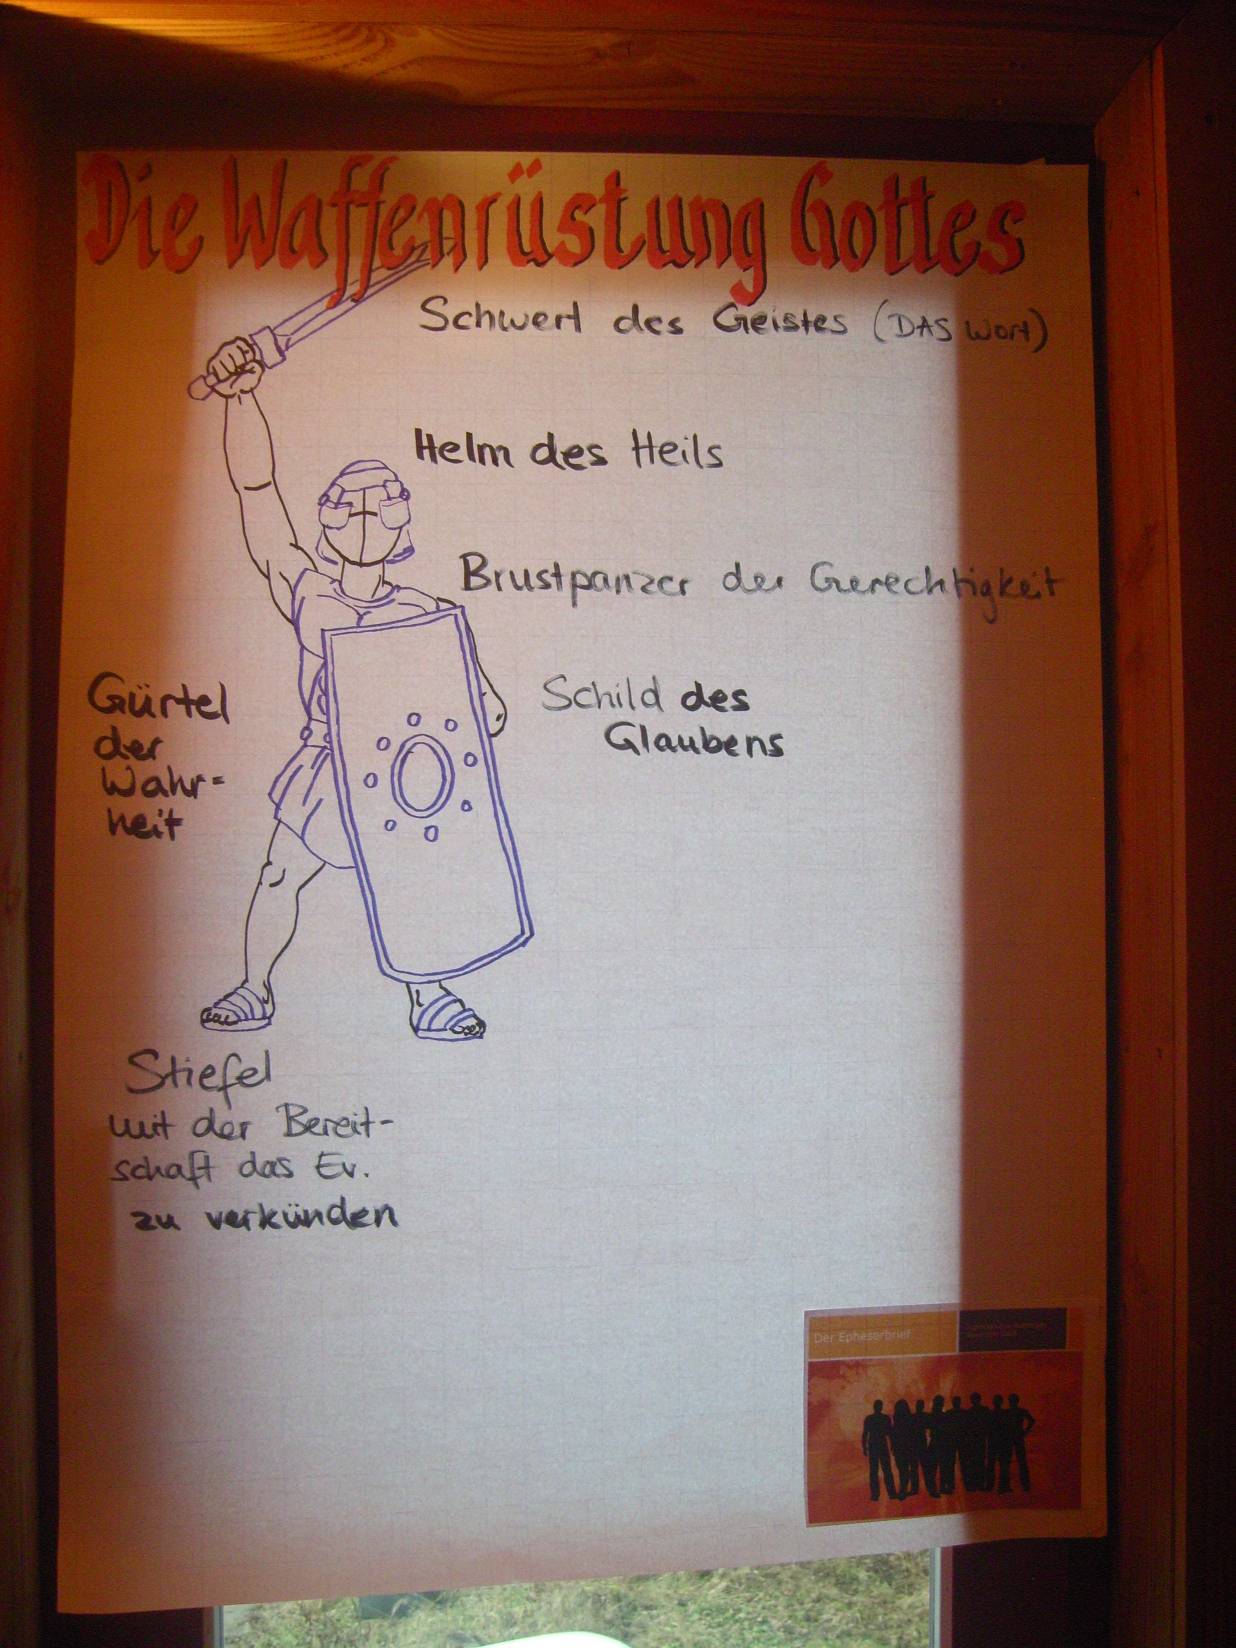 Die Waffenrüstung Gottes
Schwert des Geistes (DAS Wort)
Helm des Heils
Brustpanzer der Gerechtigkeit
Gürtel
der
Wahr=
heit
Schild des
Glaubens
Stiefel
mit der Bereit-
schaft das Ev.
zu verkünden
Der Epheserbrief